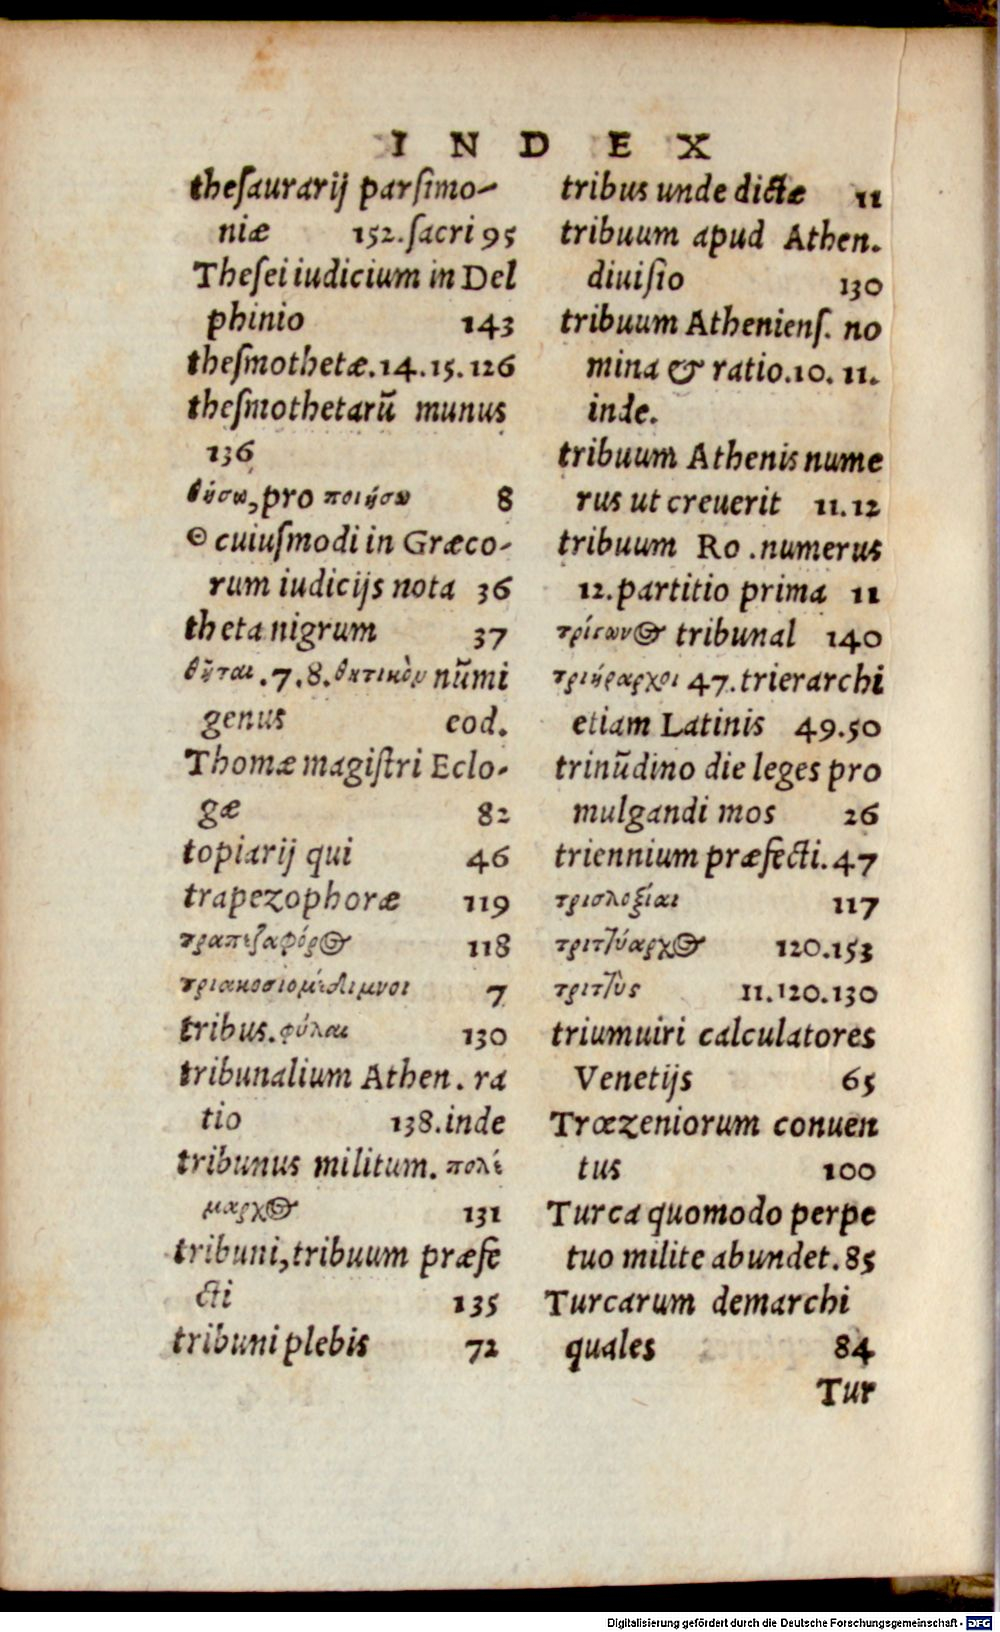 INDEX
theſaurarij parſimo-
niæ 152. ſacri 95
Theſei iudicium in Del
phinio 143
theſmothetæ. 14. 15. 126
theſmothetarũ munus
136
θήσω, pro ποιήσω 8
Θ cuiuſmodi in Græco-
rum iudicijs nota 36
theta nigrum 37
θῆται. 7. 8. θητικὸν nũmi
genus eod.
Thomæ magiſtri Eclo-
gæ 82
topiarij qui 46
trapezophoræ 119
τραπεζαφόρος 118
τριακοσιομέδιμνοι 7
tribus. φύλαι 130
tribunalium Athen. ra
tio 138. inde
tribunus militum. πολέ
μαρχος 131
tribuni, tribuum præfe
cti 135
tribuni plebis 72
tribus unde dictæ 11
tribuum apud Athen.
diuiſio 130
tribuum Athenienſ. no
mina & ratio. 10. 11.
inde.
tribuum Athenis nume
rus ut creuerit 11. 12
tribuum Ro. numerus
12. partitio prima 11
τρίγωνος tribunal 140
τριήραρχοι 47. trierarchi
etiam Latinis 49. 50
trinũdino die leges pro
mulgandi mos 26
triennium præfecti. 47
τρισλοξίαι 117
τριττύαρχος 120. 153
τριττὺς 11. 120. 130
triumuiri calculatores
Venetijs 65
Trœzeniorum conuen
tus 100
Turca quomodo perpe
tuo milite abundet. 85
Turcarum demarchi
quales 84
Tur
Digitalisierung gefördert durch die Deutsche Forschungsgemeinschaft - DFG